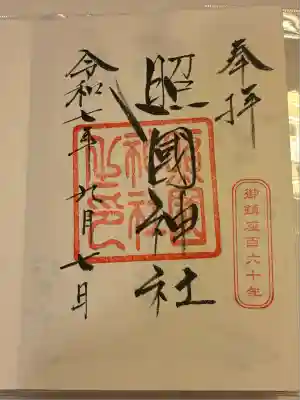 奉拝
御鎮座百六十年
照國神社
照国神社之印
令和七年九月七日